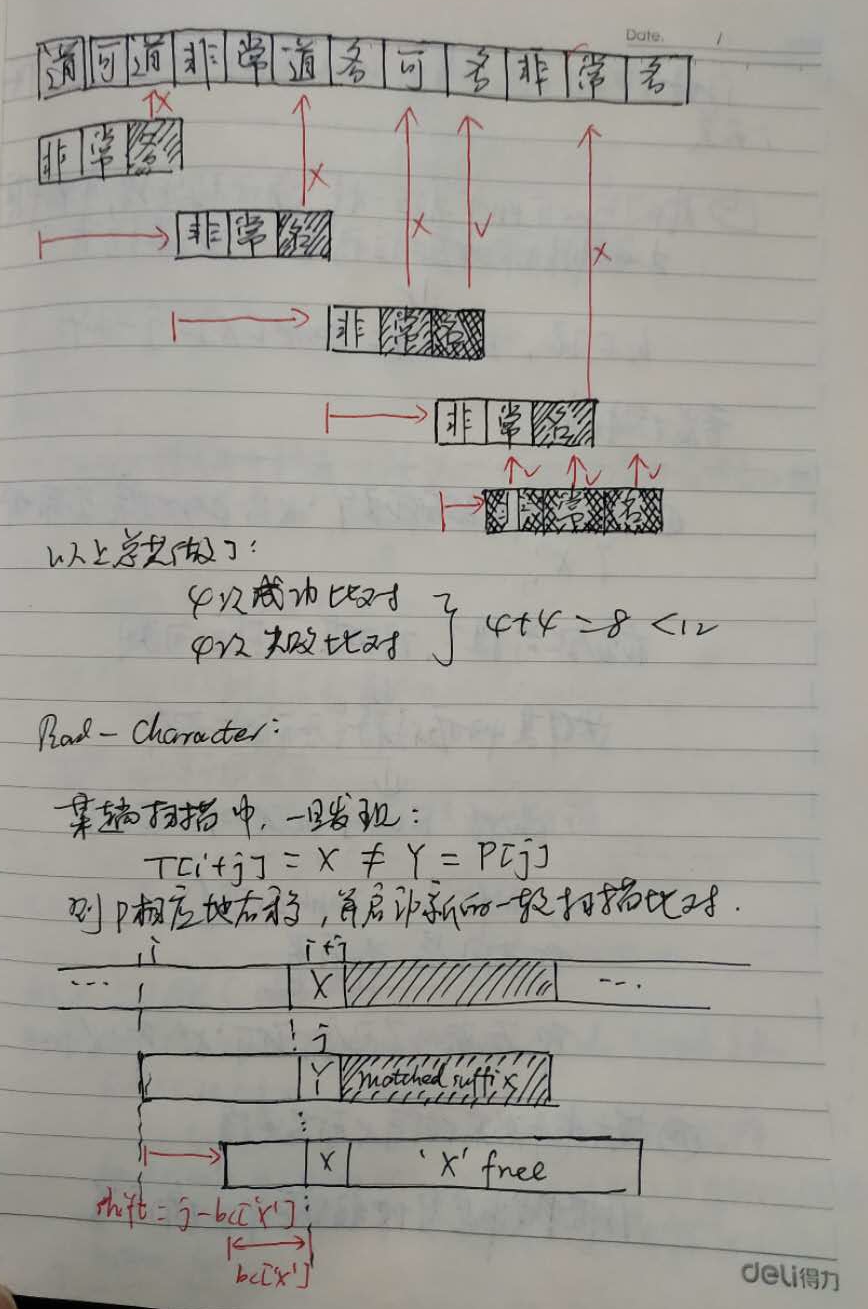 Date. /
道可道非常道名可名非常名
x
非常名
x
非常名
x
√
x
非常名
非常名
√ √ √
非常名
以上总共做了:
4次成功比对
4次失败比对
4+4=8 <12
Bad-Character:
某趟扫描中,一旦发现:
T[i+j] = X ≠ Y = P[j]
则P相应地右移,并启动新的一轮扫描比对.
i i+j
... X ...
j
Y matched suffix
X 'X' free
shift = j-bc['X']
bc['X']
deli得力